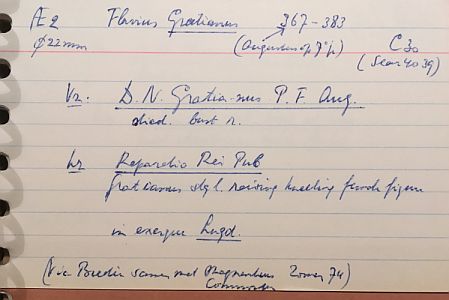 Æ 2 Flavius Gratianus 367-383
Ø 22 mm (Augustus op 8 jr.) C 30
(Sear 4039)
Vz. D. N. Gratia-nus P. F. Aug.
died. bust r.
kz Reparatio Rei Pub
Gratianus stg l. raising kneeling female figure
in exergue Lugd.
(Via Bredie samen met Magnentius Zomer 74)